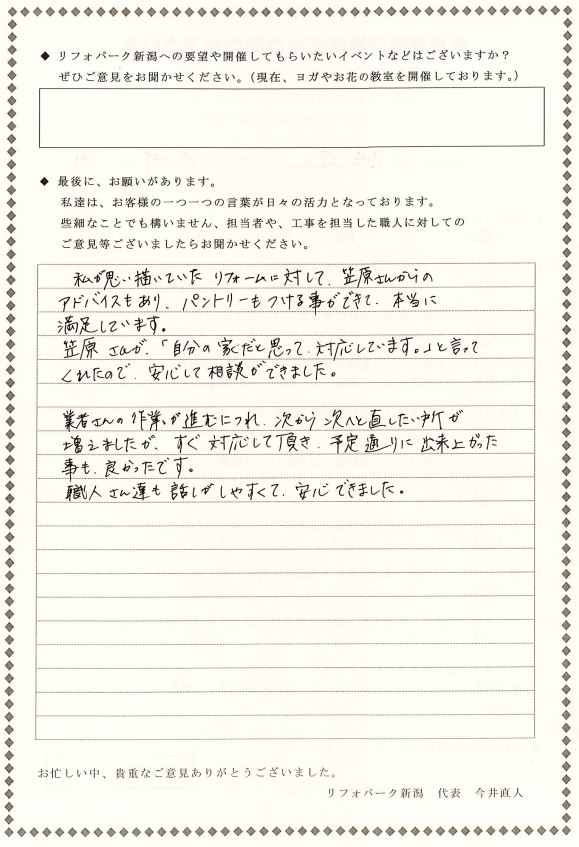 ◆ リフォパーク新潟への要望や開催してもらいたいイベントなどはございますか？
ぜひご意見をお聞かせください。（現在、ヨガやお花の教室を開催しております。）
◆ 最後に、お願いがあります。
私達は、お客様の一つ一つの言葉が日々の活力となっております。
些細なことでも構いません、担当者や、工事を担当した職人に対しての
ご意見等ございましたらお聞かせください。
私が思い描いていた リフォームに対して、笠原さんからの
アドバイスもあり、パントリーもつける事ができて、本当に
満足しています。
笠原 さんが、「自分の家だと思って、対応しています。」と言って
くれたので、安心して相談ができました。
業者さんの作業が進むにつれ、次から次へと直したい所が
増えましたが、すぐ対応して頂き、予定通りに出来上がった
事も、良かったです。
職人さん達も話しがしやすくて、安心できました。
お忙しい中、貴重なご意見ありがとうございました。
リフォパーク新潟　代表　今井直人